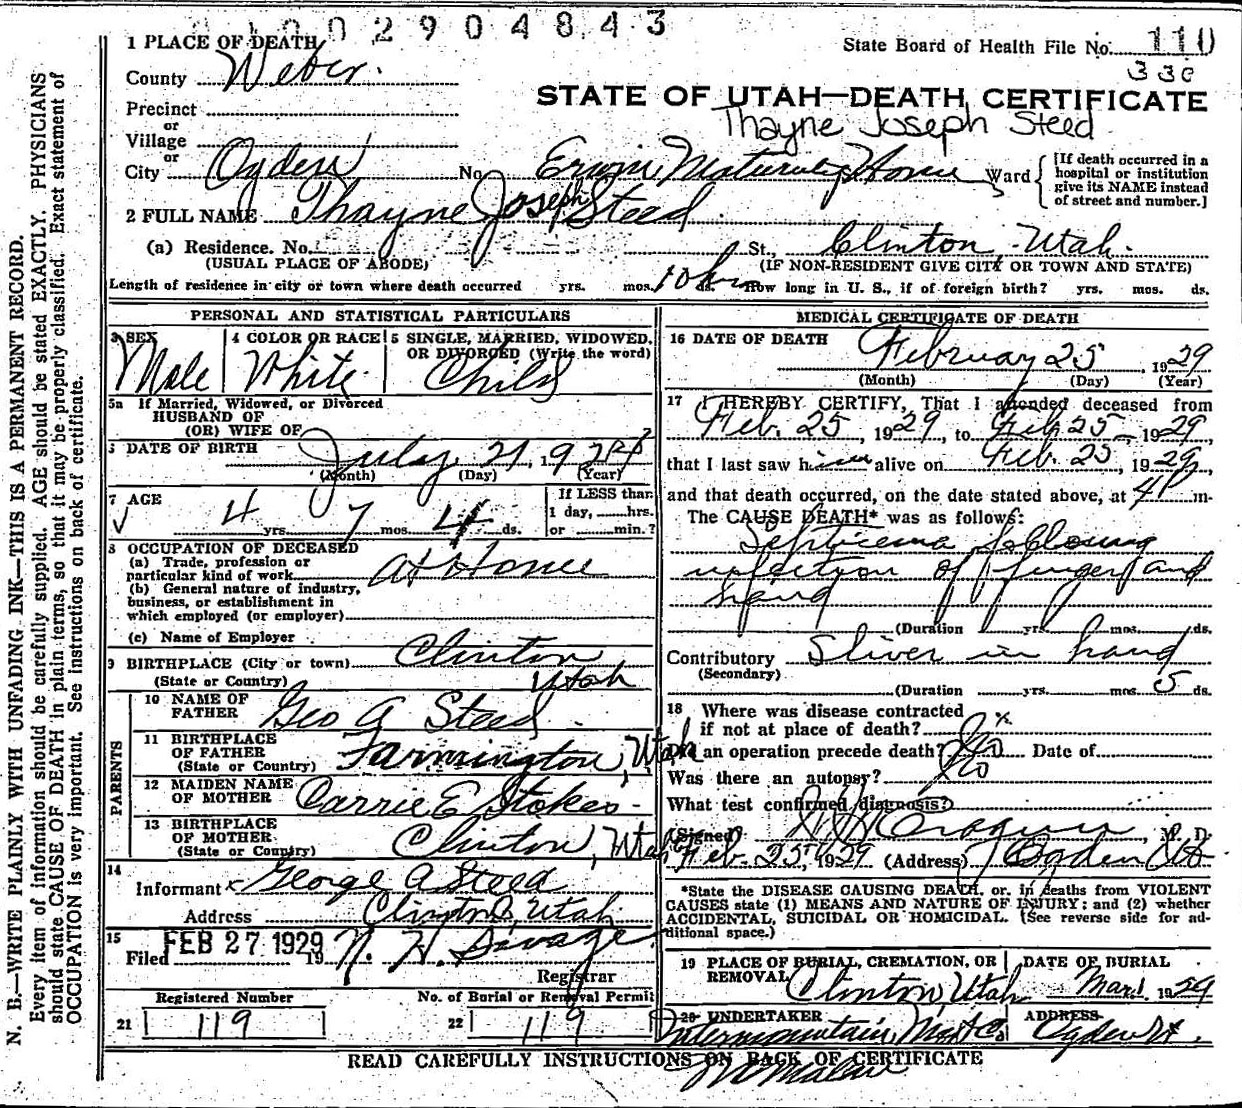 2904843
1 PLACE OF DEATH
State Board of Health File No. 110
County Weber.
330
Precinct
STATE OF UTAH—DEATH CERTIFICATE
or
Thayne Joseph Steed
Village
or
City Ogden No. Erwin Maternity Home Ward
[If death occurred in a hospital or institution give its NAME instead of street and number.]
2 FULL NAME Thayne Joseph Steed
(a) Residence. No. St., Clinton, Utah.
(USUAL PLACE OF ABODE) (IF NON-RESIDENT GIVE CITY OR TOWN AND STATE)
Length of residence in city or town where death occurred yrs. mos. 10 hrs ds. How long in U. S., if of foreign birth? yrs. mos. ds.
PERSONAL AND STATISTICAL PARTICULARS
3 SEX Male
4 COLOR OR RACE White
5 SINGLE, MARRIED, WIDOWED, OR DIVORCED (Write the word) Child
5a If Married, Widowed, or Divorced
HUSBAND OF
(OR) WIFE OF
DATE OF BIRTH July 21, 192
(Month) (Day) (Year)
7 AGE 4 yrs. 7 mos. 4 ds.
If LESS than 1 day, hrs. or min.?
8 OCCUPATION OF DECEASED
(a) Trade, profession or particular kind of work At Home
(b) General nature of industry, business, or establishment in which employed (or employer)
(c) Name of Employer
9 BIRTHPLACE (City or town) Clinton
(State or Country) Utah
PARENTS
10 NAME OF FATHER Geo A Steed.
11 BIRTHPLACE OF FATHER (State or Country) Farmington, Utah
12 MAIDEN NAME OF MOTHER Carrie E Stokes
13 BIRTHPLACE OF MOTHER (State or Country) Clinton, Utah
14
Informant x George A Steed
Address Clinton, Utah
15
Filed FEB 27 1929 19 N. H. Savage
Registrar
Registered Number No. of Burial or Removal Permit
21 119 22 119
MEDICAL CERTIFICATE OF DEATH
16 DATE OF DEATH February 25, 1929
(Month) (Day) (Year)
17 I HEREBY CERTIFY, That I attended deceased from
Feb. 25, 1929, to Feb 25, 1929,
that I last saw him alive on Feb. 25, 1929,
and that death occurred, on the date stated above, at 4 P m.
The CAUSE DEATH* was as follows:
Septicema following
infection of finger and
hand
(Duration yrs. mos. ds.
Contributory Sliver in hand
(Secondary)
(Duration yrs. mos. 5 ds.
18 Where was disease contracted
if not at place of death?
Did an operation precede death? No Date of
Was there an autopsy? No
What test confirmed diagnosis?
(Signed) M. D.
Feb. 25, 1929 (Address) Ogden Ut
*State the DISEASE CAUSING DEATH, or, in deaths from VIOLENT
CAUSES state (1) MEANS AND NATURE OF INJURY; and (2) whether
ACCIDENTAL, SUICIDAL OR HOMICIDAL. (See reverse side for ad-
ditional space.)
19 PLACE OF BURIAL, CREMATION, OR REMOVAL Clinton, Utah
DATE OF BURIAL Mar. 1 1929
20 UNDERTAKER Intermountain Mort Co.
ADDRESS Ogden Ut.
READ CAREFULLY INSTRUCTIONS ON BACK OF CERTIFICATE
N. B.—WRITE PLAINLY WITH UNFADING INK—THIS IS A PERMANENT RECORD.
Every item of information should be carefully supplied. AGE should be stated EXACTLY. PHYSICIANS
should state CAUSE OF DEATH in plain terms, so that it may be properly classified. Exact statement of
OCCUPATION is very important. See instructions on back of certificate.